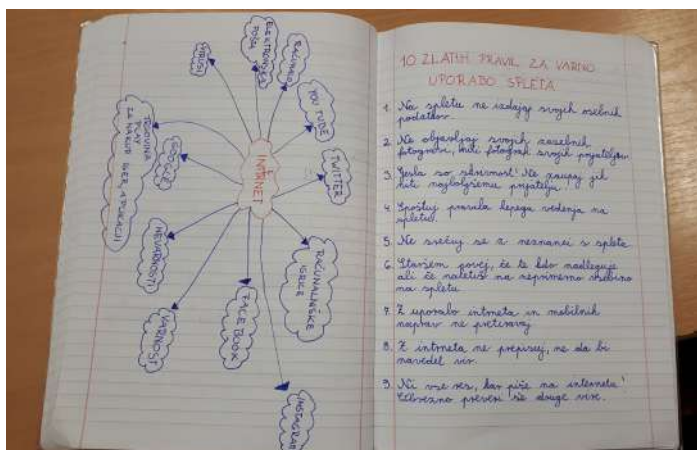 VIRUSI
ELEKTRONSKA
POŠTA
RAČUNALO
YOU TUBE
TWITTER
RAČUNALNIŠKE
IGRICE
INSTAGRAM
FACEBOOK
VARNOST
NEVARNOSTI
GOOGLE
TRGOVINA
PLAY
ZA NAKUP IGER, APLIKACIJ
INTERNET
10 ZLATIH PRAVIL ZA VARNO
UPORABO SPLETA
1. Na spletu ne izdajaj svojih osebnih
podatkov.
2. Ne objavljaj svojih zasebnih
fotografij, niti fotografij svojih prijateljev.
3. Gesla so skrivnost! Ne zaupaj jih
niti najboljšemu prijatelju.
4. Spoštuj pravila lepega vedenja na
spletu.
5. Ne srečuj se z neznanci s spleta
6. Staršem povej, če te kdo nadleguje
ali če naletiš na neprimerno vsebino
na spletu.
7. Z uporabo intrneta in mobilnih
naprav ne pretiravaj
8. Z intrneta ne prepisuj, ne da bi
navedel vir.
9. Ni vse res, kar piše na internetu!
Obvezno preveri še druge vire.